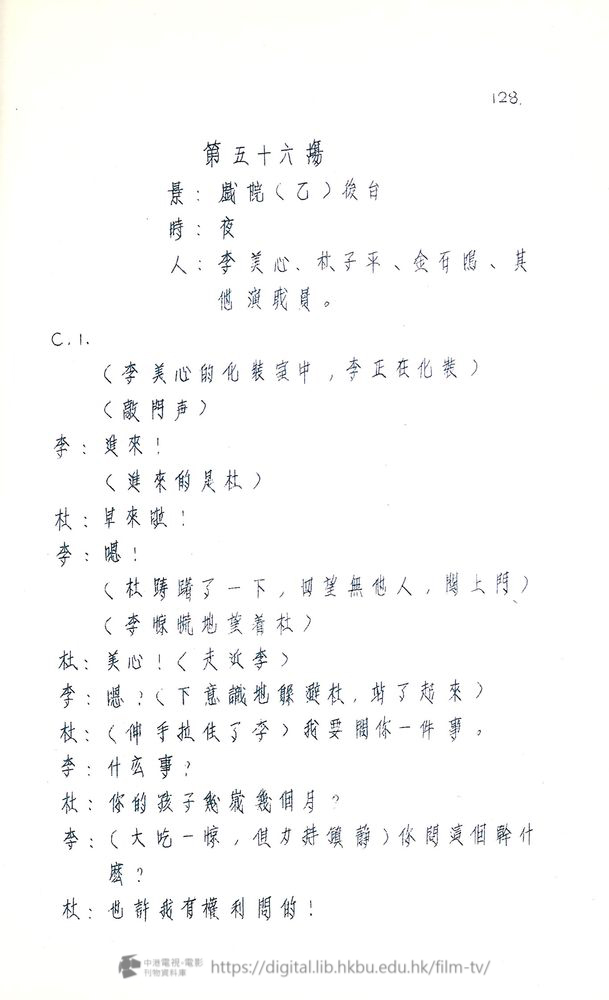 128.
第五十六場
景：戲院（乙）後台
時：夜
人：李美心、杜子平、金石鳴、其
他演戏員。
C.1.
（李美心的化裝室中，李正在化裝）
（敲門声）
李：進來！
（進來的是杜）
杜：早來啦！
李：嗯！
（杜躊躇了一下，四望無他人，關上門）
（李惊慌地望着杜）
杜：美心！（走近李）
李：嗯？（下意識地躲避杜，站了起來）
杜：（伸手拉住了李）我要問你一件事。
李：什么事？
杜：你的孩子幾歲幾個月？
李：（大吃一惊，但力持鎮靜）你問這個幹什
麼？
杜：也許我有權利問的！
中港電視•電影
刊物資料庫
https://digital.lib.hkbu.edu.hk/film-tv/